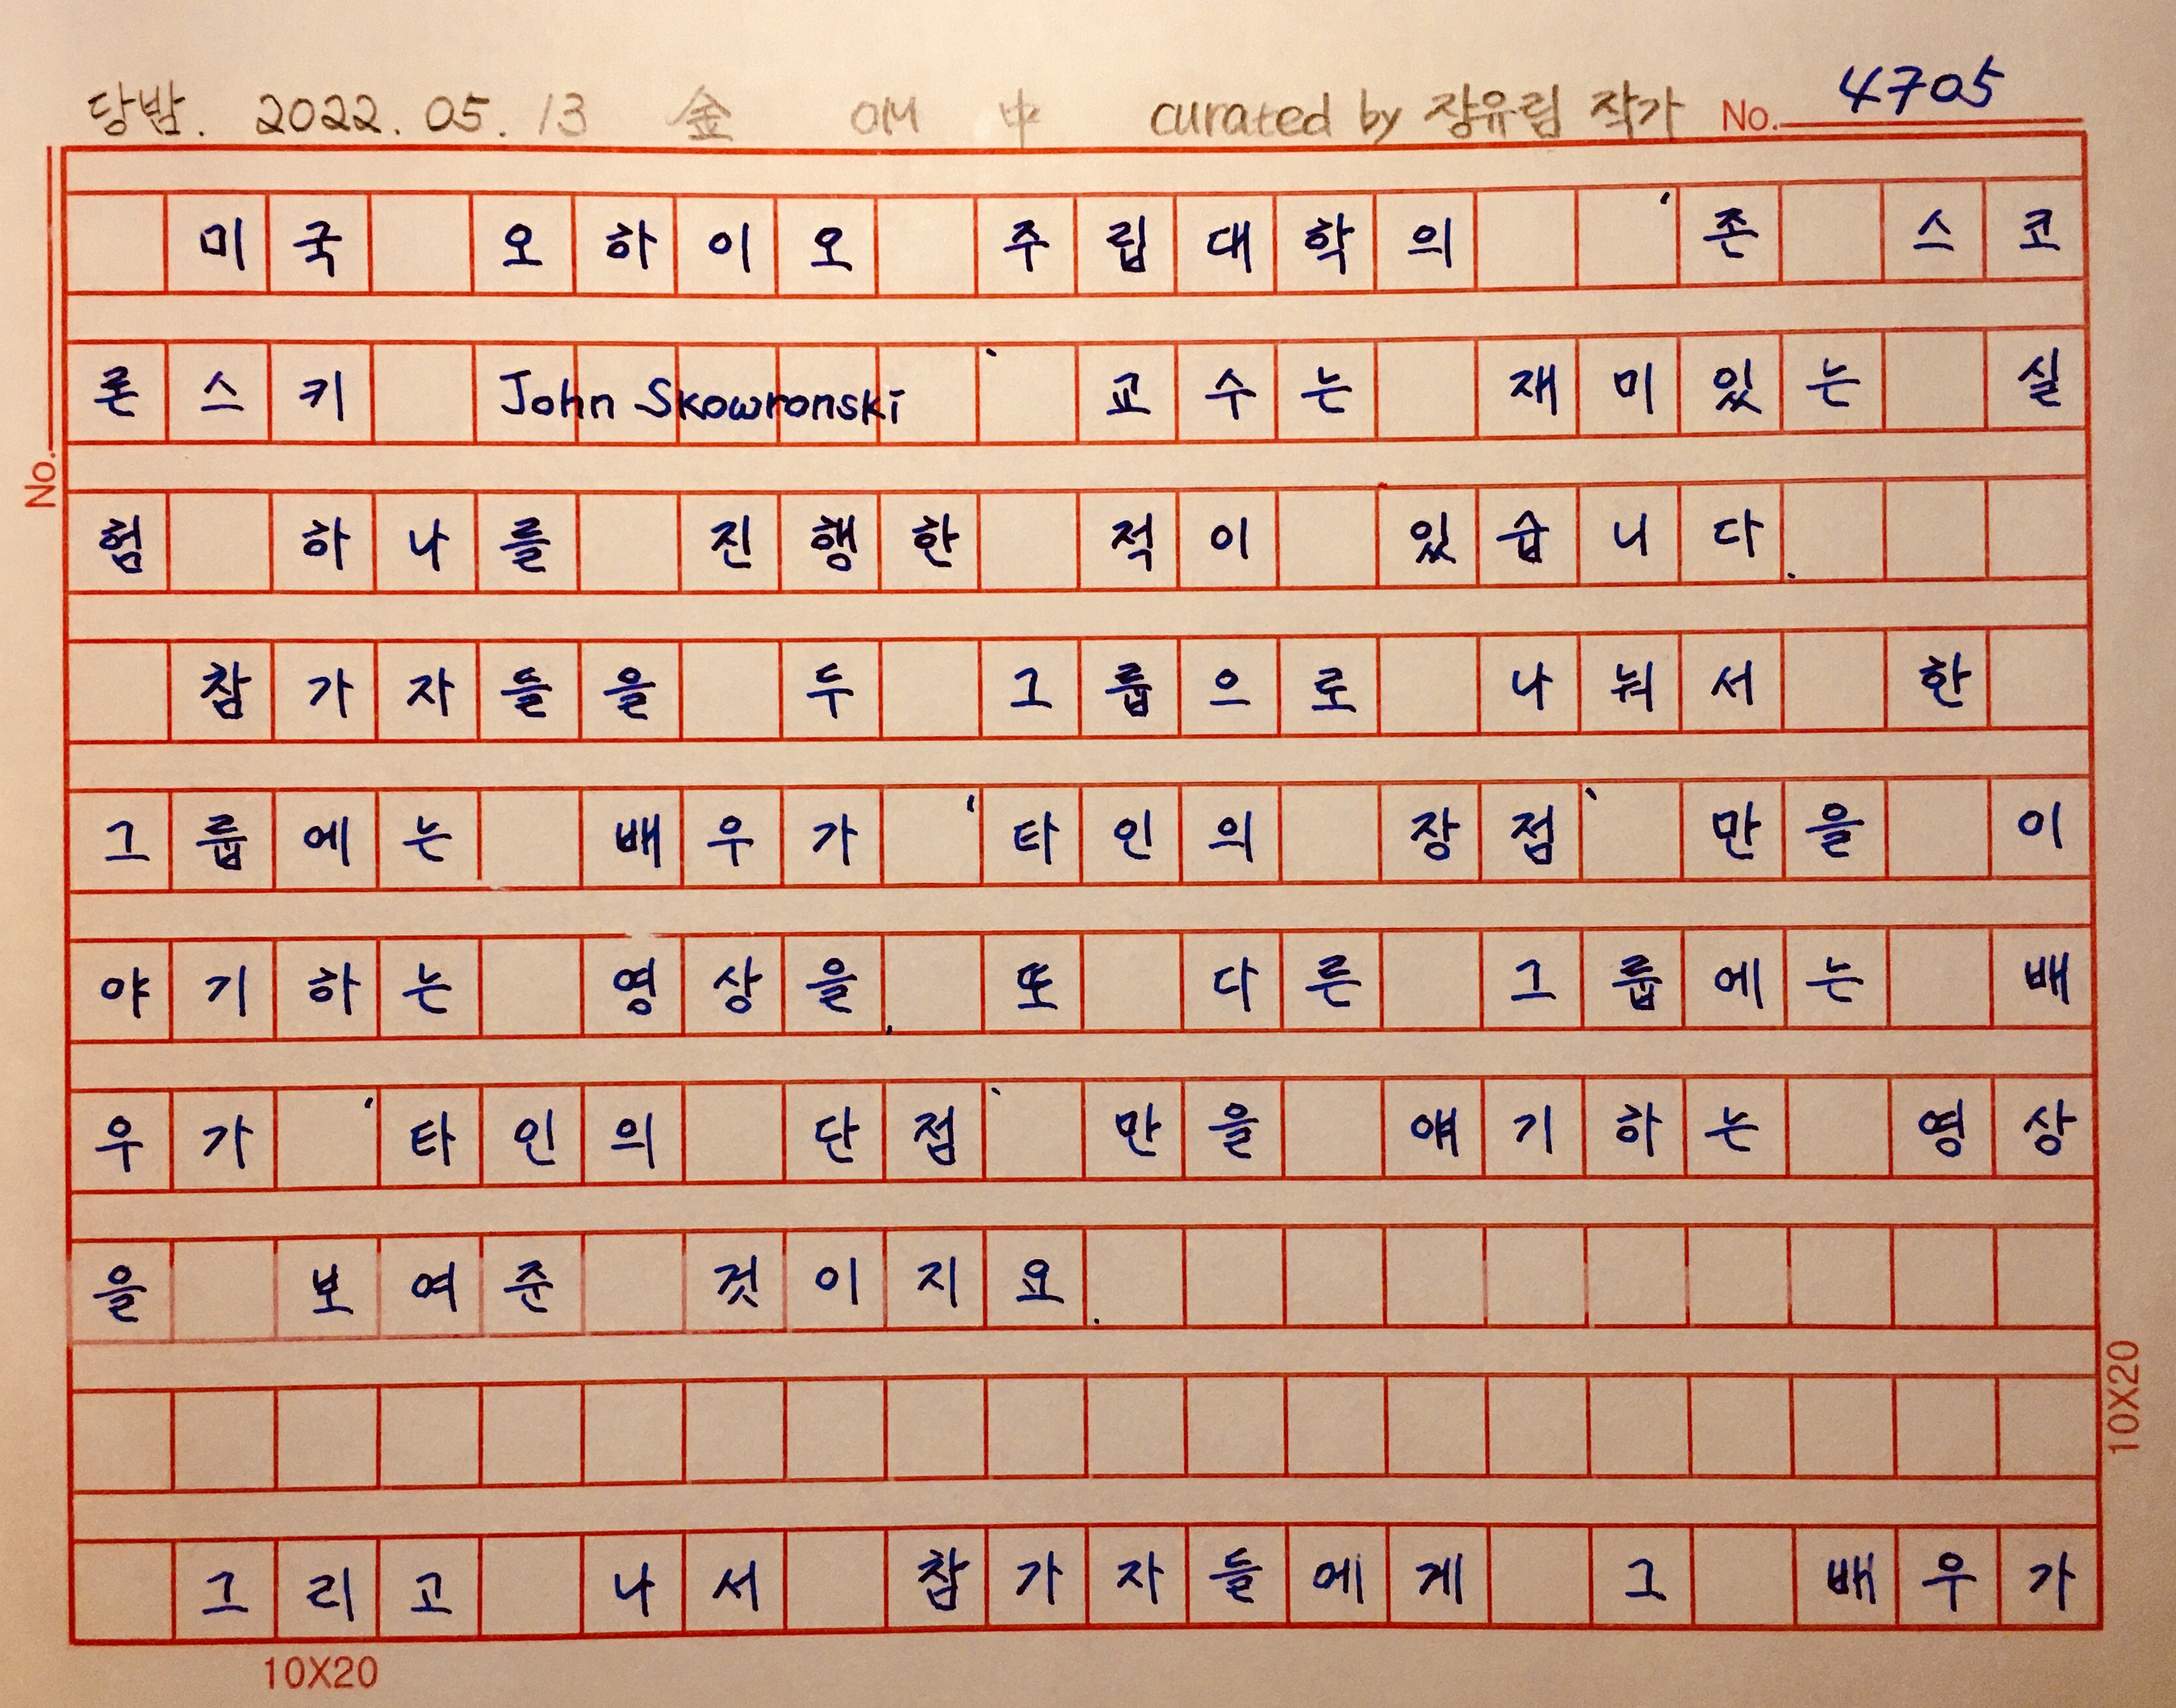 당밤. 2022. 05. 13 金 OM 中 curated by 장유림 작가 No. 4705
미국 오하이오 주립대학의 '존 스코
론스키 John Skowronski' 교수는 재미있는 실
험 하나를 진행한 적이 있습니다.
No.
참가자들을 두 그룹으로 나눠서 한
그룹에는 배우가 '타인의 장점' 만을 이
야기하는 영상을, 또 다른 그룹에는 배
우가 '타인의 단점' 만을 얘기하는 영상
을 보여준 것이지요.
10X20
그리고 나서 참가자들에게 그 배우가
10X20